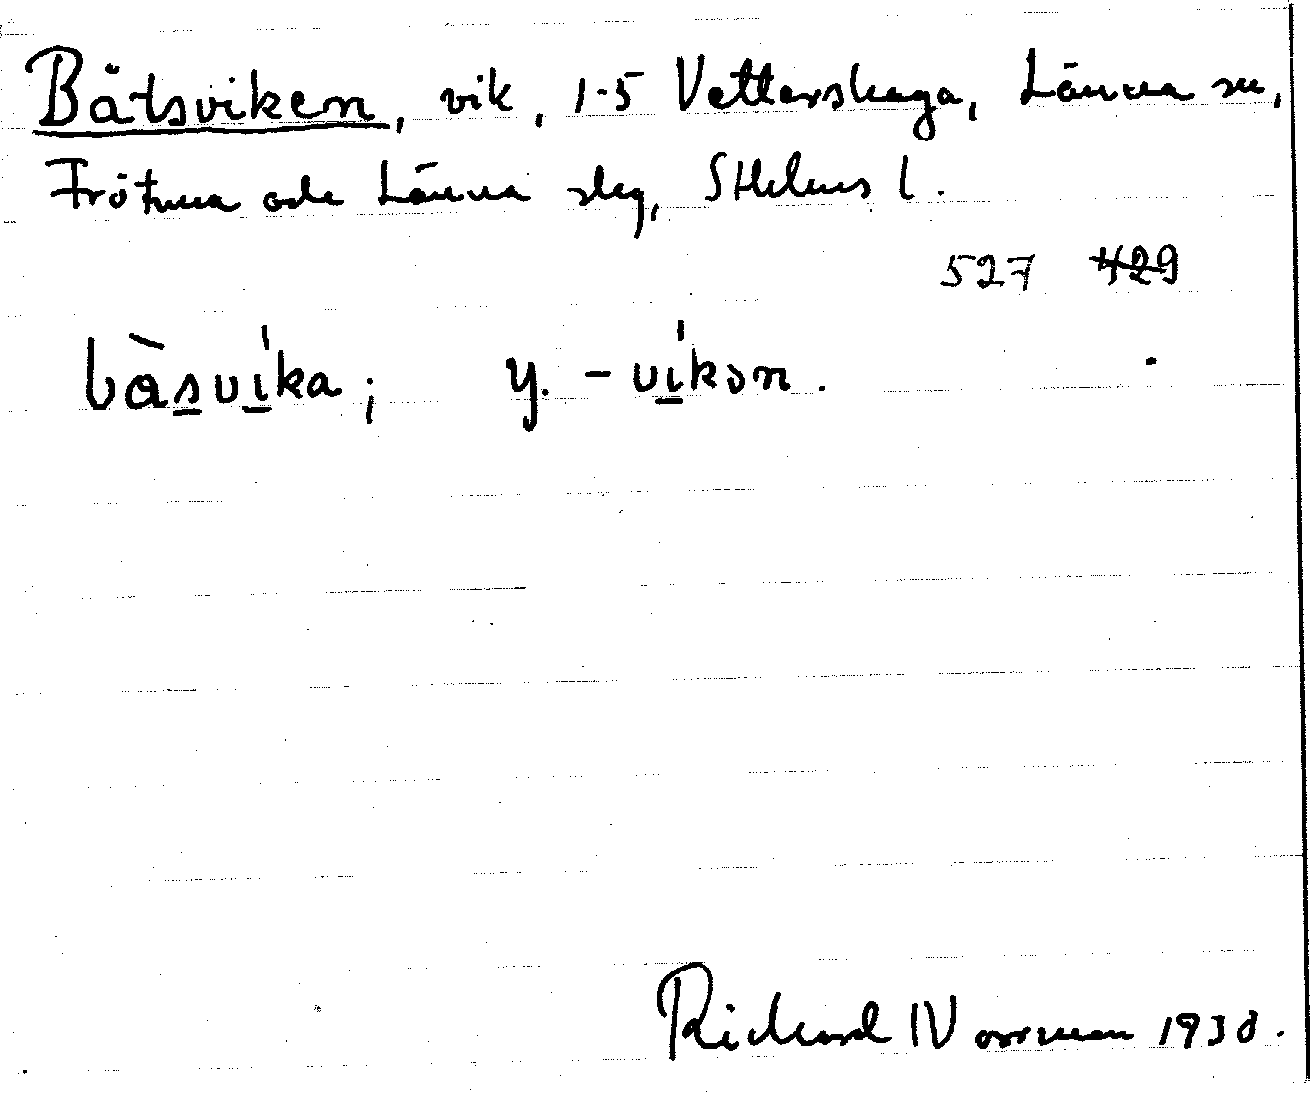 Båtsviken, vik, 1-5 Vettershaga, Länna sn,
Frötuna och Länna skg, Sthlms l.
527 429
bàsvika; y. -vikən.
Richard Norrman 1930.